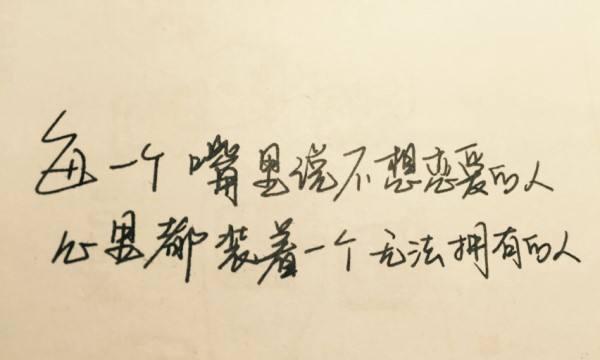 每一个嘴里说不想恋爱的人
心里都装着一个无法拥有的人